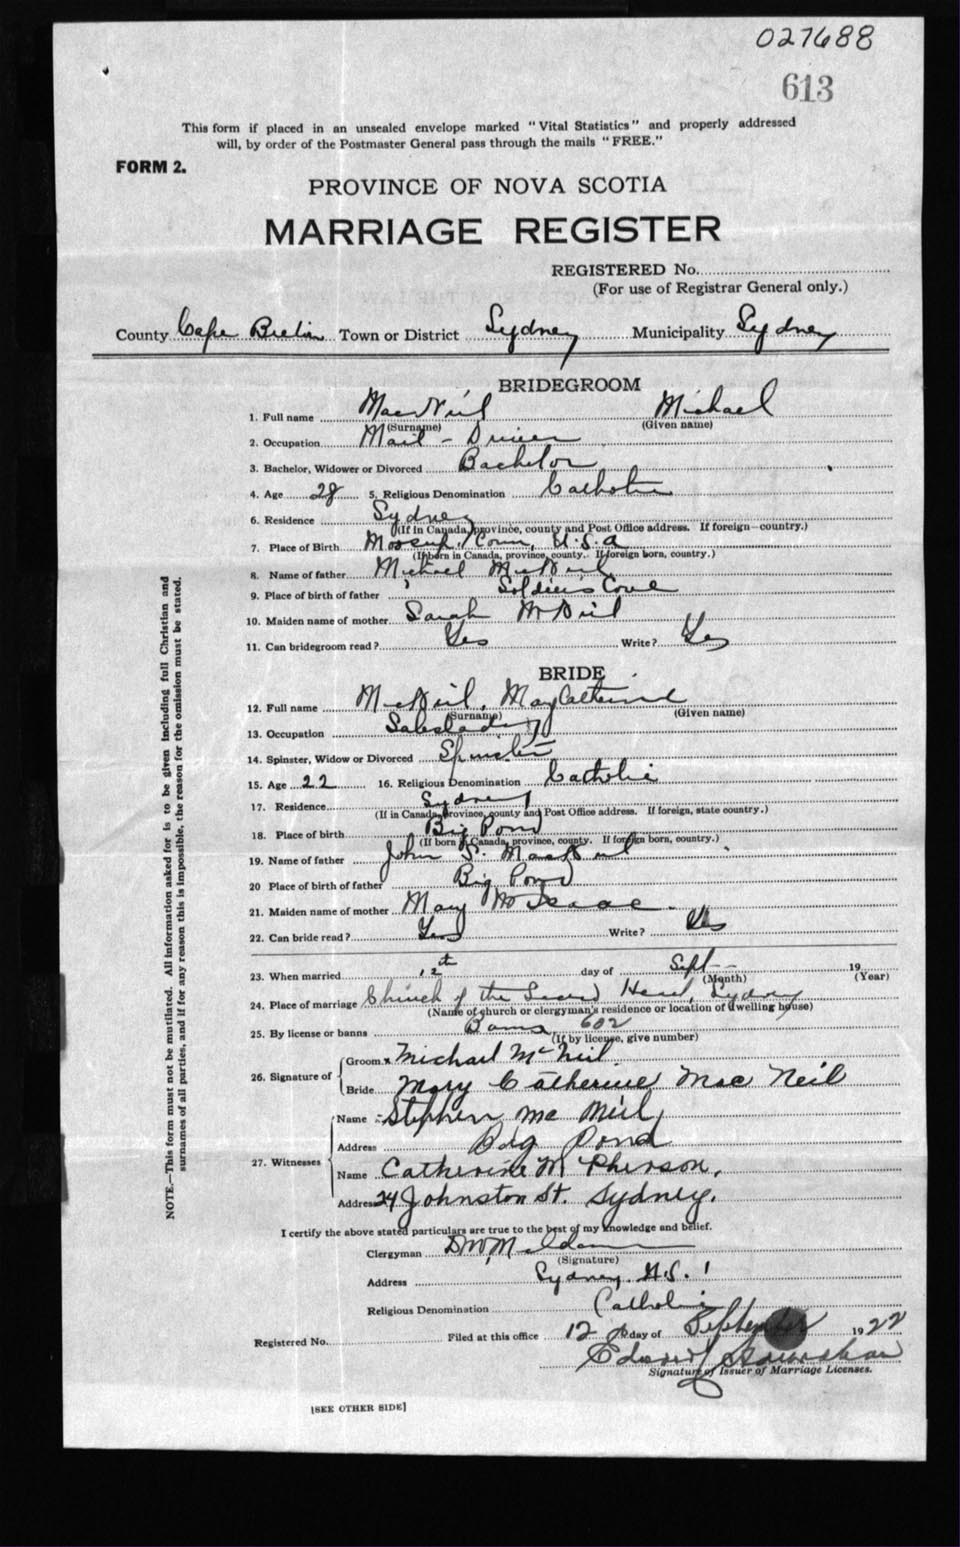 027688
613
This form if placed in an unsealed envelope marked "Vital Statistics" and properly addressed
will, by order of the Postmaster General pass through the mails "FREE."
FORM 2.
PROVINCE OF NOVA SCOTIA
MARRIAGE REGISTER
REGISTERED No.
(For use of Registrar General only.)
County Cape Breton Town or District Sydney Municipality Sydney
BRIDEGROOM
1. Full name MacNeil Michael
(Surname) (Given name)
2. Occupation Mail - Driver
3. Bachelor, Widower or Divorced Bachelor
4. Age 28 5. Religious Denomination Catholic
6. Residence Sydney
(If in Canada, province, county and Post Office address. If foreign—country.)
7. Place of Birth Moosup, Conn, U.S.A
(If born in Canada, province, county. If foreign born, country.)
8. Name of father Michael McNeil
9. Place of birth of father Soldier's Cove
10. Maiden name of mother Sarah McNeil
11. Can bridegroom read? Yes Write? Yes
BRIDE
12. Full name McNeil, May Catherine
(Surname) (Given name)
13. Occupation Saleslady
14. Spinster, Widow or Divorced Spinster
15. Age 22 16. Religious Denomination Catholic
17. Residence Sydney
(If in Canada, province, county and Post Office address. If foreign, state country.)
18. Place of birth Big Pond
(If born in Canada, province, county. If foreign born, country.)
19. Name of father John S. MacNeil
20 Place of birth of father Big Pond
21. Maiden name of mother Mary McIsaac
22. Can bride read? Yes Write? Yes
23. When married 12th day of Sept 19
(Month) (Year)
24. Place of marriage Church of the Sacred Heart, Sydney
(Name of church or clergyman's residence or location of dwelling house)
25. By license or banns Banns 602
(If by license, give number)
26. Signature of Groom x Michael McNeil
Bride Mary Catherine Mac Neil
27. Witnesses Name Stephen Mc Neil,
Address Big Pond
Name Catherine McPherson,
Address 24 Johnston St. Sydney.
I certify the above stated particulars are true to the best of my knowledge and belief.
Clergyman
(Signature)
Address Sydney N.S.
Religious Denomination Catholic
Registered No. Filed at this office 12 th day of September 1922
Signature of Issuer of Marriage Licenses.
[SEE OTHER SIDE]
NOTE.—This form must not be mutilated. All information asked for is to be given including full Christian and
surnames of all parties, and if for any reason this is impossible, the reason for the omission must be stated.